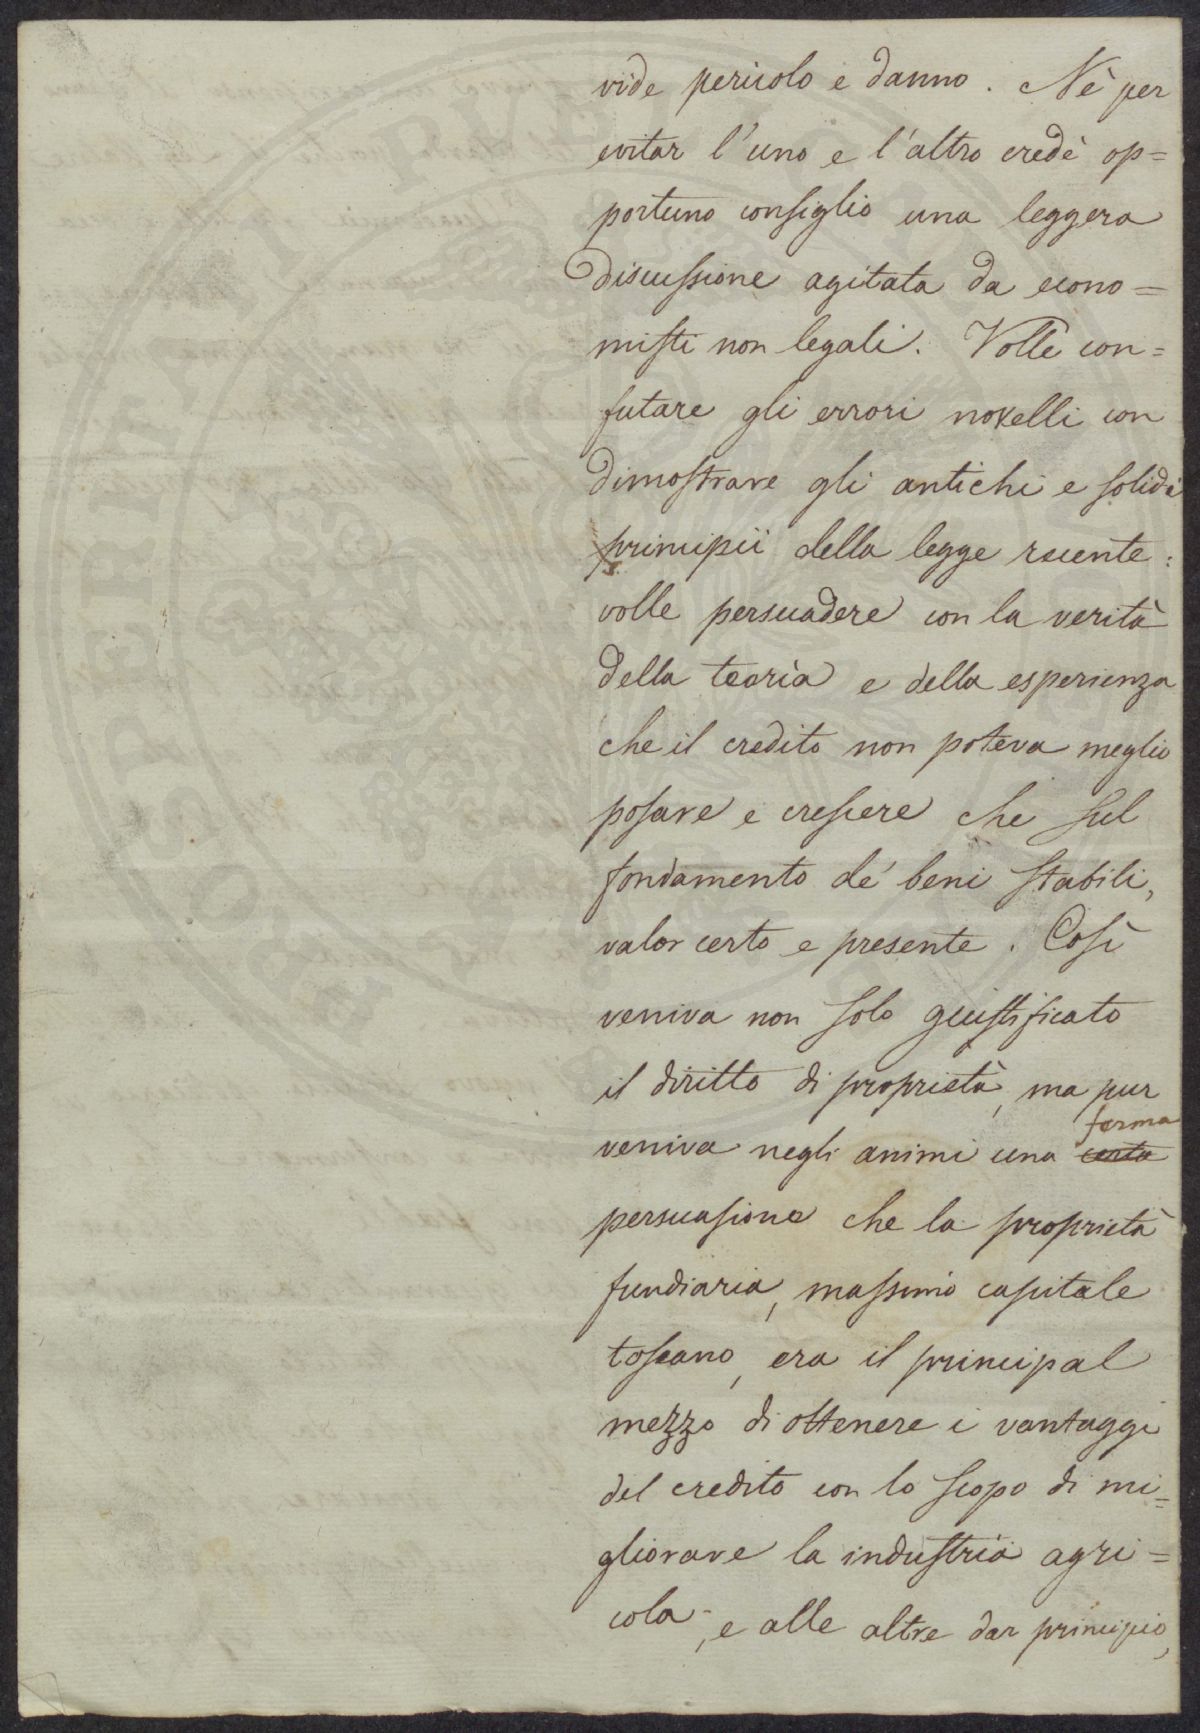 vide pericolo e danno. Nè per
evitar l'uno e l'altro credè op=
portuno consiglio una leggera
discussione agitata da econo=
misti non legali. Volle con=
futare gli errori novelli con
dimostrare gli antichi e solidi
principii della legge recente:
volle persuadere con la verità
della teoria e della esperienza
che il credito non poteva meglio
posare e crescere che sul
fondamento de' beni stabili,
valor certo e presente. Così
veniva non solo giustificato
il diritto di proprietà, ma pur
ferma
veniva negli animi una certa
persuasione che la proprietà
fundiaria, massimo capitale
toscano, era il principal
mezzo di ottenere i vantaggi
del credito con lo scopo di mi=
gliorare la industria agri=
cola, e alle altre dar principio,